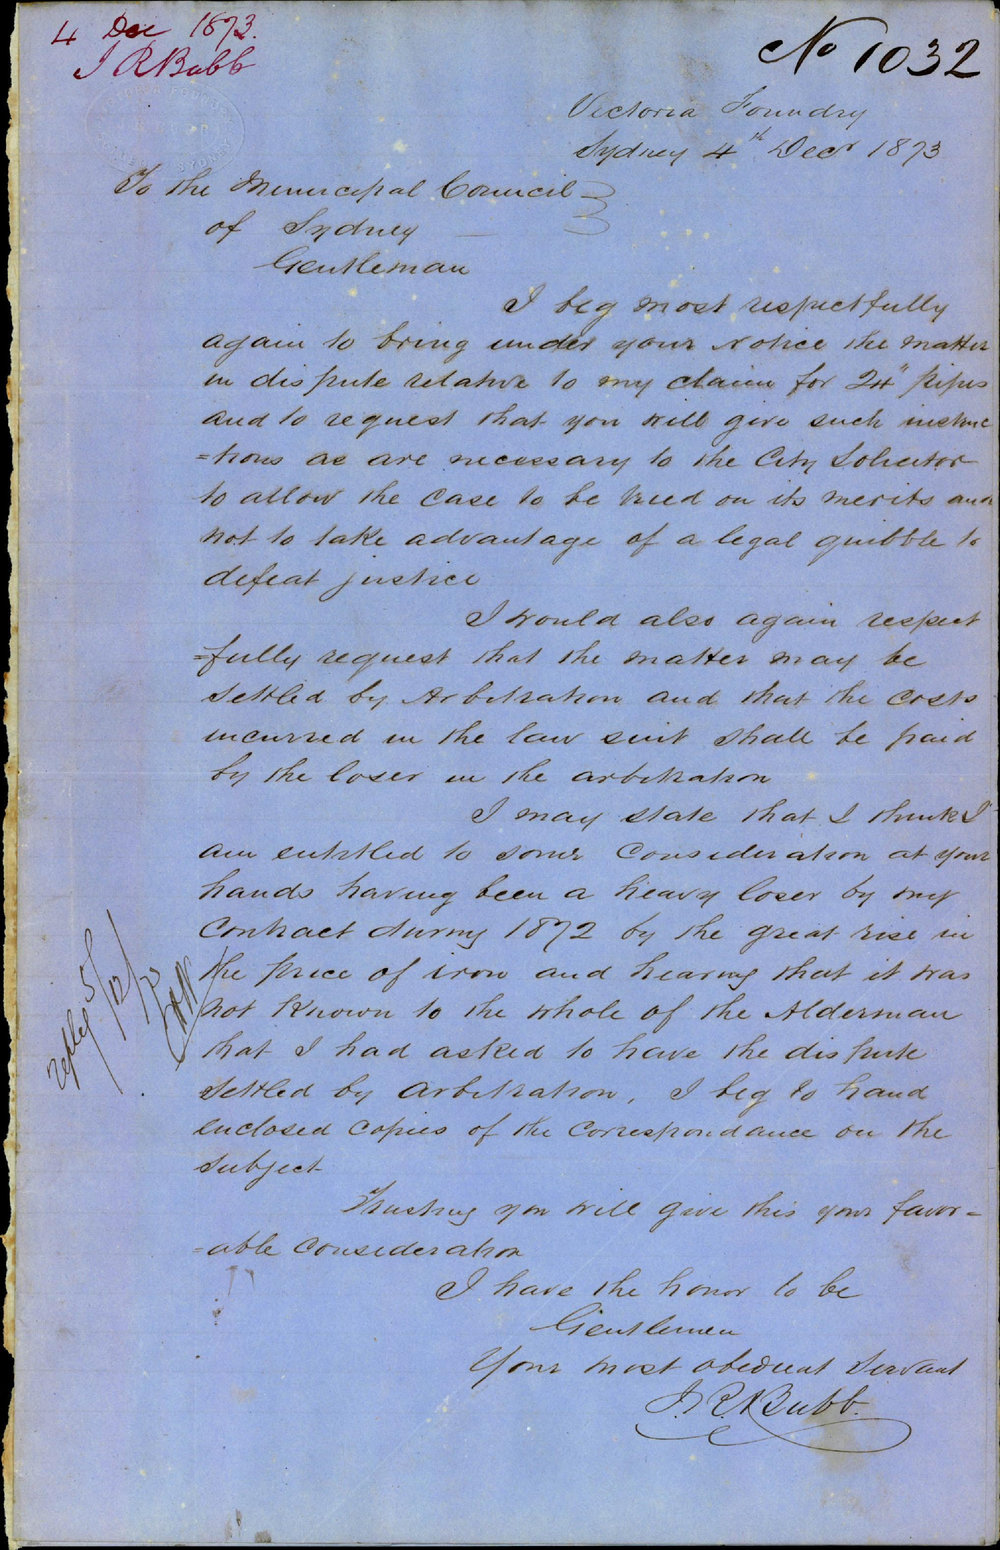 4 Dec 1873.
J R Bubb
No 1032
Victoria Foundry
Sydney 4th Decr 1873
To the Municipal Council
of Sydney
Gentleman
I beg most respectfully
again to bring under your Notice the matter
in dispute relative to my claim for 24" pipes
and to request that you will give such instruc
=tions as are necessary to the City Solicitor
to allow the case to be tried on its merits and
not to take advantage of a legal quibble to
defeat justice
I would also again respect
=fully request that the matter may be
settled by Arbitration and that the costs
incurred in the law suit shall be paid
by the loser in the arbitration
I may state that I think I
am entitled to some consideration at your
hands having been a heavy loser by my
contract during 1872 by the great rise in
the price of iron and hearing that it was
not known to the whole of the Alderman
that I had asked to have the dispute
settled by arbitration, I beg to hand
enclosed copies of the correspondance on the
subject
Trusting you will give this your favor=
=able consideration
I have the honor to be
Gentlemen
Your most obedient Servant
J. R. Bubb.
reply 5/12/73